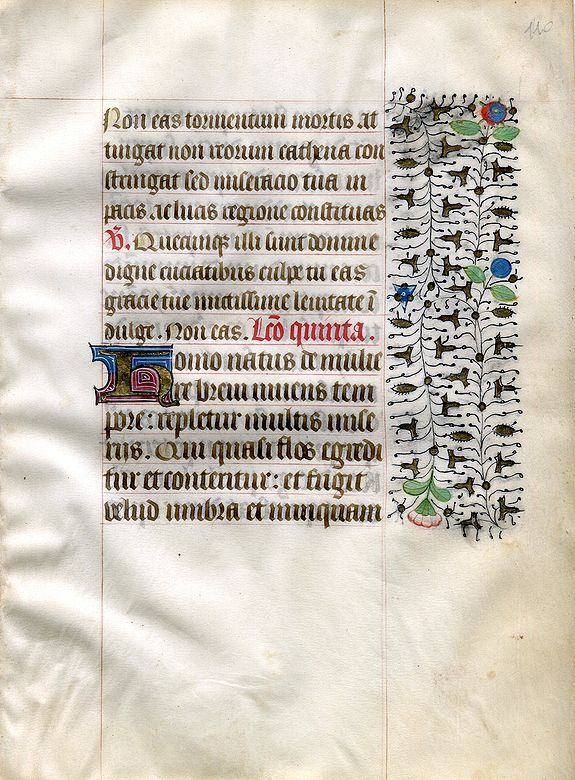 110
Non eas tormentum mortis at
tingat non reorum cathena con
stringat sed miseracio tua in
pacis ac lucis regione constituas
V. Quecumqz illi sunt domine
digne cruciatibus culpe tu eas
gracie tue mitissime lenitate ī
dulge. Non eas. Lēo quinta.
Homo natus de mulie
re brevi vivens tem
pore: repletur multis mise
riis. Qui quasi flos egredi
tur et conteritur: et fugit
velud umbra et nunquam